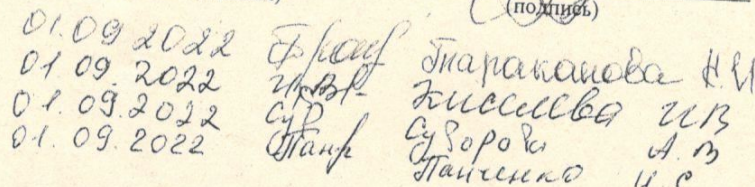 (подпись)
01.09.2022 Тараканова Н.И
01 09. 2022 Киселева И В
01. 09. 2022 Сув Суворова А. В
01. 09. 2022 Панч Панченко